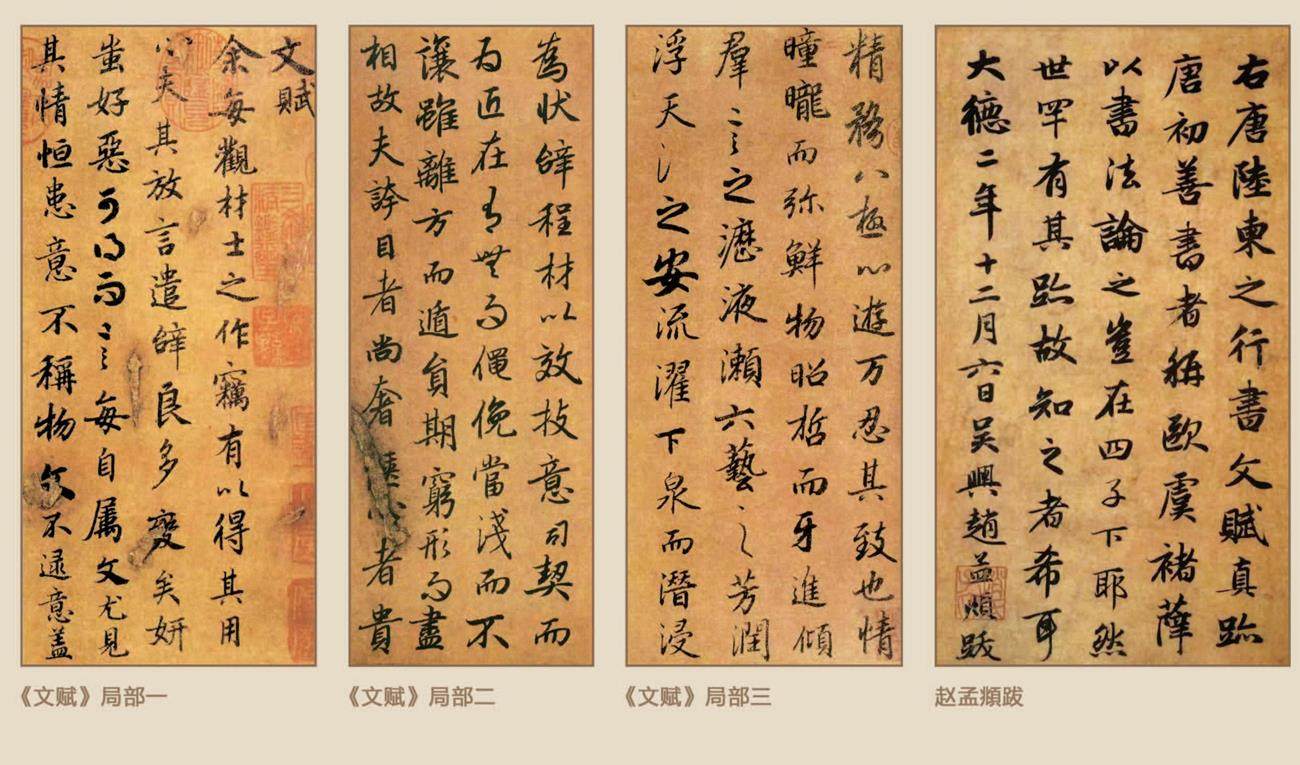 文賦
余每觀材士之作竊有以得其用
心夫其放言遣辝良多變矣妍
蚩好惡可得而言每自属文尤見
其情恒患意不稱物文不逮意盖
《文赋》局部一
為状辝程材以效技意司契而
為匠在有無而僶俛當淺而不
讓雖離方而遁員期窮形而盡
相故夫誇目者尚奢愜心者貴
《文赋》局部二
精務八極心遊万忍其致也情
曈曨而弥鮮物昭晢而互進傾
羣言之瀝液漱六藝之芳潤
浮天淵之安流濯下泉而潜浸
《文赋》局部三
右唐陸柬之行書文賦真跡
唐初善書者稱歐虞褚薛
以書法論之豈在四子下耶然
世罕有其跡故知之者希耳
大德二年十二月六日吴興趙孟頫跋
赵孟頫跋